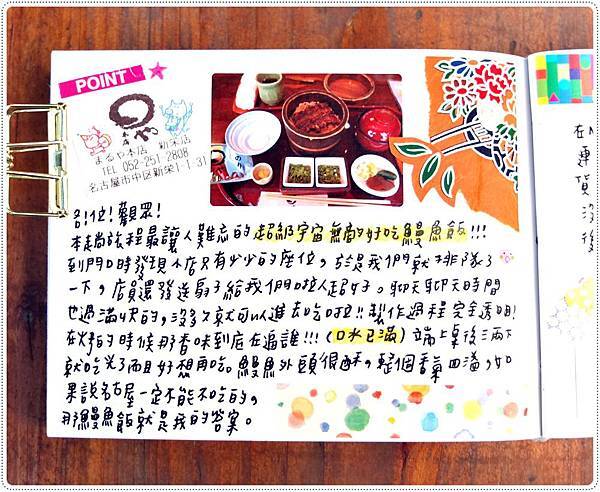 POINT
本店
まるや本店 新栄店
TEL 052-251-2808
名古屋市中区新栄1-1-31
各位!觀眾!
本趟旅程最讓人難忘的超級宇宙無敵好吃鰻魚飯!!!
到門口時發現小店只有少少的座位,於是我們就排隊了
一下,店員還發送扇子給我們啦人超好。聊天聊天時間
也過滿快的,沒多久就可以進去吃啦!!製作過程完全透明!
在烤的時候那香味到底在逼誰!!!(口水已滿)端上桌後三兩下
就吃光了而且好想再吃。鰻魚外頭很酥,整個香氣四溢,如
果說名古屋一定不能不吃的,
那鰻魚飯就是我的答案。
在
運貨
沒
後